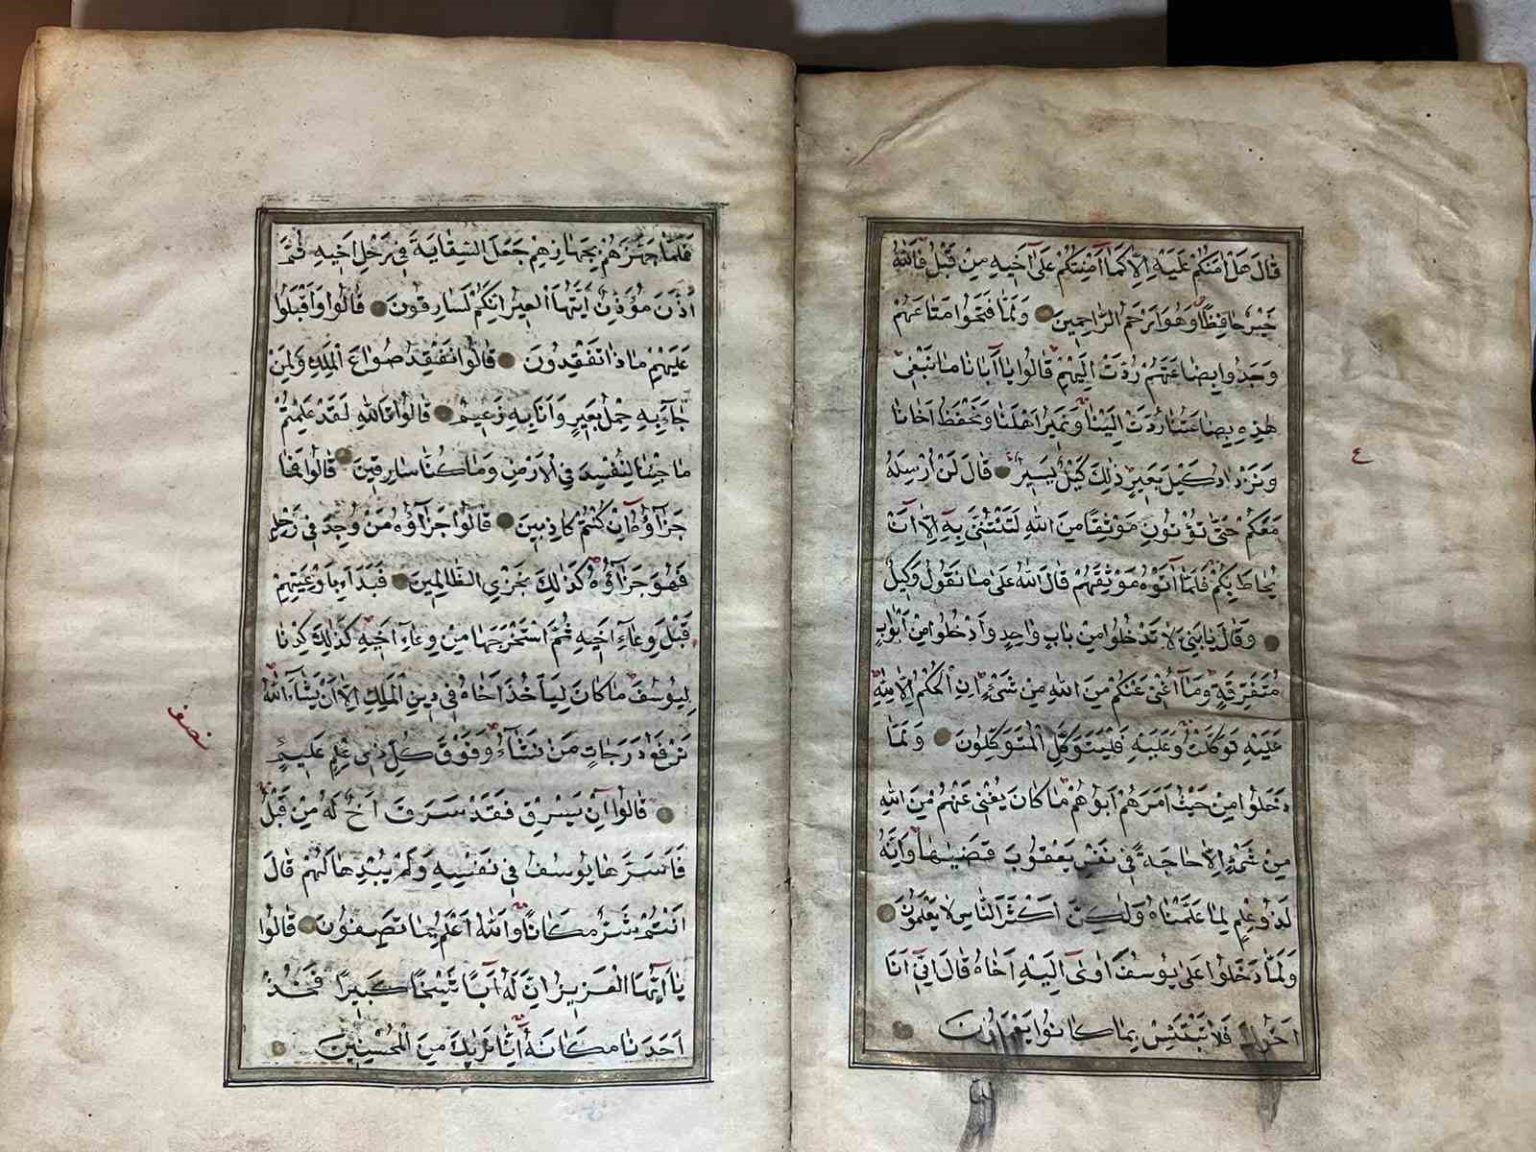 قَالَ هَلْ اٰمَنُكُمْ عَلَيْهِ اِلَّا كَمَا اَمِنْتُكُمْ عَلٰى اَخِيهِ مِنْ قَبْلُ فَاللّٰهُ
خَيْرٌ حَافِظًا وَهُوَ اَرْحَمُ الرَّاحِمِينَ وَلَمَّا فَتَحُوا مَتَاعَهُمْ
وَجَدُوا بِضَاعَتَهُمْ رُدَّتْ اِلَيْهِمْ قَالُوا يَا اَبَانَا مَا نَبْغِى
هٰذِهِ بِضَاعَتُنَا رُدَّتْ اِلَيْنَا وَنَمِيرُ اَهْلَنَا وَنَحْفَظُ اَخَانَا
وَنَزْدَادُ كَيْلَ بَعِيرٍ ذٰلِكَ كَيْلٌ يَسِيرٌ قَالَ لَنْ اُرْسِلَهُ
مَعَكُمْ حَتّٰى تُؤْتُونِ مَوْثِقًا مِنَ اللّٰهِ لَتَأْتُنَّنِى بِهِ اِلَّا اَنْ
يُحَاطَ بِكُمْ فَلَمَّا اٰتَوْهُ مَوْثِقَهُمْ قَالَ اللّٰهُ عَلٰى مَا نَقُولُ وَكِيلٌ
وَقَالَ يَا بَنِىَّ لَا تَدْخُلُوا مِنْ بَابٍ وَاحِدٍ وَادْخُلُوا مِنْ اَبْوَابٍ
مُتَفَرِّقَةٍ وَمَا اُغْنِى عَنْكُمْ مِنَ اللّٰهِ مِنْ شَىْءٍ اِنِ الْحُكْمُ اِلَّا لِلّٰهِ
عَلَيْهِ تَوَكَّلْتُ وَعَلَيْهِ فَلْيَتَوَكَّلِ الْمُتَوَكِّلُونَ وَلَمَّا
دَخَلُوا مِنْ حَيْثُ اَمَرَهُمْ اَبُوهُمْ مَا كَانَ يُغْنِى عَنْهُمْ مِنَ اللّٰهِ
مِنْ شَىْءٍ اِلَّا حَاجَةً فِى نَفْسِ يَعْقُوبَ قَضٰيهَا وَاِنَّهُ
لَذُو عِلْمٍ لِمَا عَلَّمْنَاهُ وَلٰكِنَّ اَكْثَرَ النَّاسِ لَا يَعْلَمُونَ
وَلَمَّا دَخَلُوا عَلٰى يُوسُفَ اٰوٰى اِلَيْهِ اَخَاهُ قَالَ اِنِّى اَنَا
اَخُوكَ فَلَا تَبْتَئِسْ بِمَا كَانُوا يَعْمَلُونَ
ع
فَلَمَّا جَهَّزَهُمْ بِجَهَازِهِمْ جَعَلَ السِّقَايَةَ فِى رَحْلِ اَخِيهِ ثُمَّ
اَذَّنَ مُؤَذِّنٌ اَيَّتُهَا الْعِيرُ اِنَّكُمْ لَسَارِقُونَ قَالُوا وَاَقْبَلُوا
عَلَيْهِمْ مَاذَا تَفْقِدُونَ قَالُوا نَفْقِدُ صُوَاعَ الْمَلِكِ وَلِمَنْ
جَاءَ بِهِ حِمْلُ بَعِيرٍ وَاَنَا بِهِ زَعِيمٌ قَالُوا تَاللّٰهِ لَقَدْ عَلِمْتُمْ
مَا جِئْنَا لِنُفْسِدَ فِى الْاَرْضِ وَمَا كُنَّا سَارِقِينَ قَالُوا فَمَا
جَزَاؤُهُ اِنْ كُنْتُمْ كَاذِبِينَ قَالُوا جَزَاؤُهُ مَنْ وُجِدَ فِى رَحْلِهِ
فَهُوَ جَزَاؤُهُ كَذٰلِكَ نَجْزِى الظَّالِمِينَ فَبَدَاَ بِاَوْعِيَتِهِمْ
قَبْلَ وِعَاءِ اَخِيهِ ثُمَّ اسْتَخْرَجَهَا مِنْ وِعَاءِ اَخِيهِ كَذٰلِكَ كِدْنَا
لِيُوسُفَ مَا كَانَ لِيَأْخُذَ اَخَاهُ فِى دِينِ الْمَلِكِ اِلَّا اَنْ يَشَاءَ اللّٰهُ
نَرْفَعُ دَرَجَاتٍ مَنْ نَشَاءُ وَفَوْقَ كُلِّ ذِى عِلْمٍ عَلِيمٌ
قَالُوا اِنْ يَسْرِقْ فَقَدْ سَرَقَ اَخٌ لَهُ مِنْ قَبْلُ
فَاَسَرَّهَا يُوسُفُ فِى نَفْسِهِ وَلَمْ يُبْدِهَا لَهُمْ قَالَ
اَنْتُمْ شَرٌّ مَكَانًا وَاللّٰهُ اَعْلَمُ بِمَا تَصِفُونَ قَالُوا
يَا اَيُّهَا الْعَزِيزُ اِنَّ لَهُ اَبًا شَيْخًا كَبِيرًا فَخُذْ
اَحَدَنَا مَكَانَهُ اِنَّا نَرٰيكَ مِنَ الْمُحْسِنِينَ
نصف